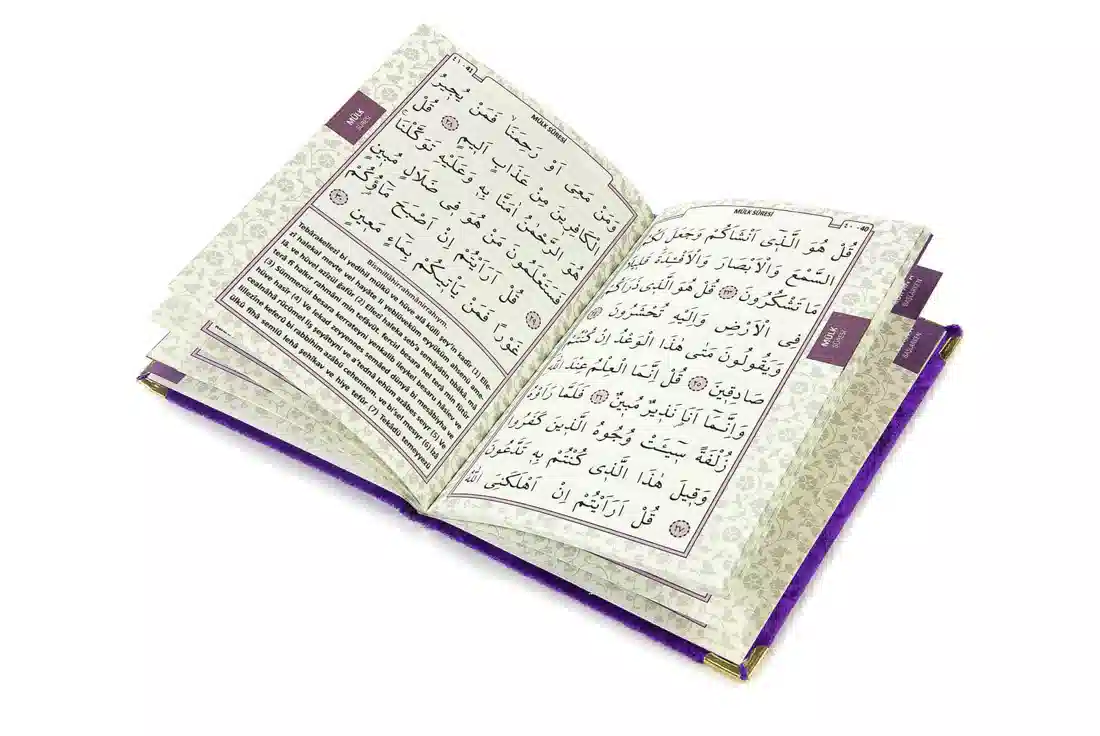 MÜLK SÛRESİ
٤٠ - 40
قُلْ هُوَ الَّذِٓى اَنْشَاَكُمْ وَجَعَلَ لَكُمُ
السَّمْعَ وَالْاَبْصَارَ وَالْاَفْئِدَةَ قَلِيلًا
مَا تَشْكُرُونَ ٢٣ قُلْ هُوَ الَّذِى ذَرَاَكُمْ
فِى الْاَرْضِ وَاِلَيْهِ تُحْشَرُونَ ٢٤
وَيَقُولُونَ مَتٰى هٰذَا الْوَعْدُ اِنْ كُنْتُمْ
صَادِقِينَ ٢٥ قُلْ اِنَّمَا الْعِلْمُ عِنْدَ اللّٰهِ
وَاِنَّمَٓا اَنَا۬ نَذِيرٌ مُبِينٌ ٢٦ فَلَمَّا رَاَوْهُ
زُلْفَةً سِٓيـَٔتْ وُجُوهُ الَّذِينَ كَفَرُوا
وَقِيلَ هٰذَا الَّذِى كُنْتُمْ بِهِ تَدَّعُونَ
٢٧ قُلْ اَرَاَيْتُمْ اِنْ اَهْلَكَنِىَ اللّٰهُ
MÜLK
SÛRESİ
BAŞLARKEN
BAŞLARKEN
MÜLK SÛRESİ
٤١ - 41
وَمَنْ مَعِىَ اَوْ رَحِمَنَا فَمَنْ يُجِيرُ
الْكَافِرِينَ مِنْ عَذَابٍ اَلِيمٍ ٢٨ قُلْ
هُوَ الرَّحْمٰنُ اٰمَنَّا بِهِ وَعَلَيْهِ تَوَكَّلْنَا
فَسَتَعْلَمُونَ مَنْ هُوَ فِى ضَلَالٍ مُبِينٍ
٢٩ قُلْ اَرَاَيْتُمْ اِنْ اَصْبَحَ مَٓاؤُ۬كُمْ
غَوْرًا فَمَنْ يَأْتِيكُمْ بِمَٓاءٍ مَعِينٍ ٣٠
Bismillâhirrahmânirrahîym.
Tebârakellezî bi yedihil mülkü ve hüve alâ külli şey'in kadîr (1) Elle-
zî halekal mevte vel hayâte li yeblüveküm eyyüküm ahsenü ame-
lâ. ve hüvel azîzül ğafûr (2) Ellezî haleka seb'a semâvâtin tıbâkâ. mâ
terâ fî halkır rahmâni min tefâvüt. ferciıl besara hel terâ min fütûr
(3) Sümmerciıl besara kerrateyni yenkalib ileykel besaru hâsiev ve
hüve hasîr (4) Ve lekad zeyyennes semâed dünyâ bi mesâbiyha ve
cealnâhâ rücûmel liş şeyâtıyni ve a'tednâ lehüm azâbes seıyr (5) Ve
lillezîne keferû bi rabbihim azâbü cehennem. ve bi'sel mesıyr (6) İzâ
ülkû fîhâ semiû lehâ şehîkav ve hiye tefûr (7) Tekâdü temeyyezü
MÜLK
SÛRESİ